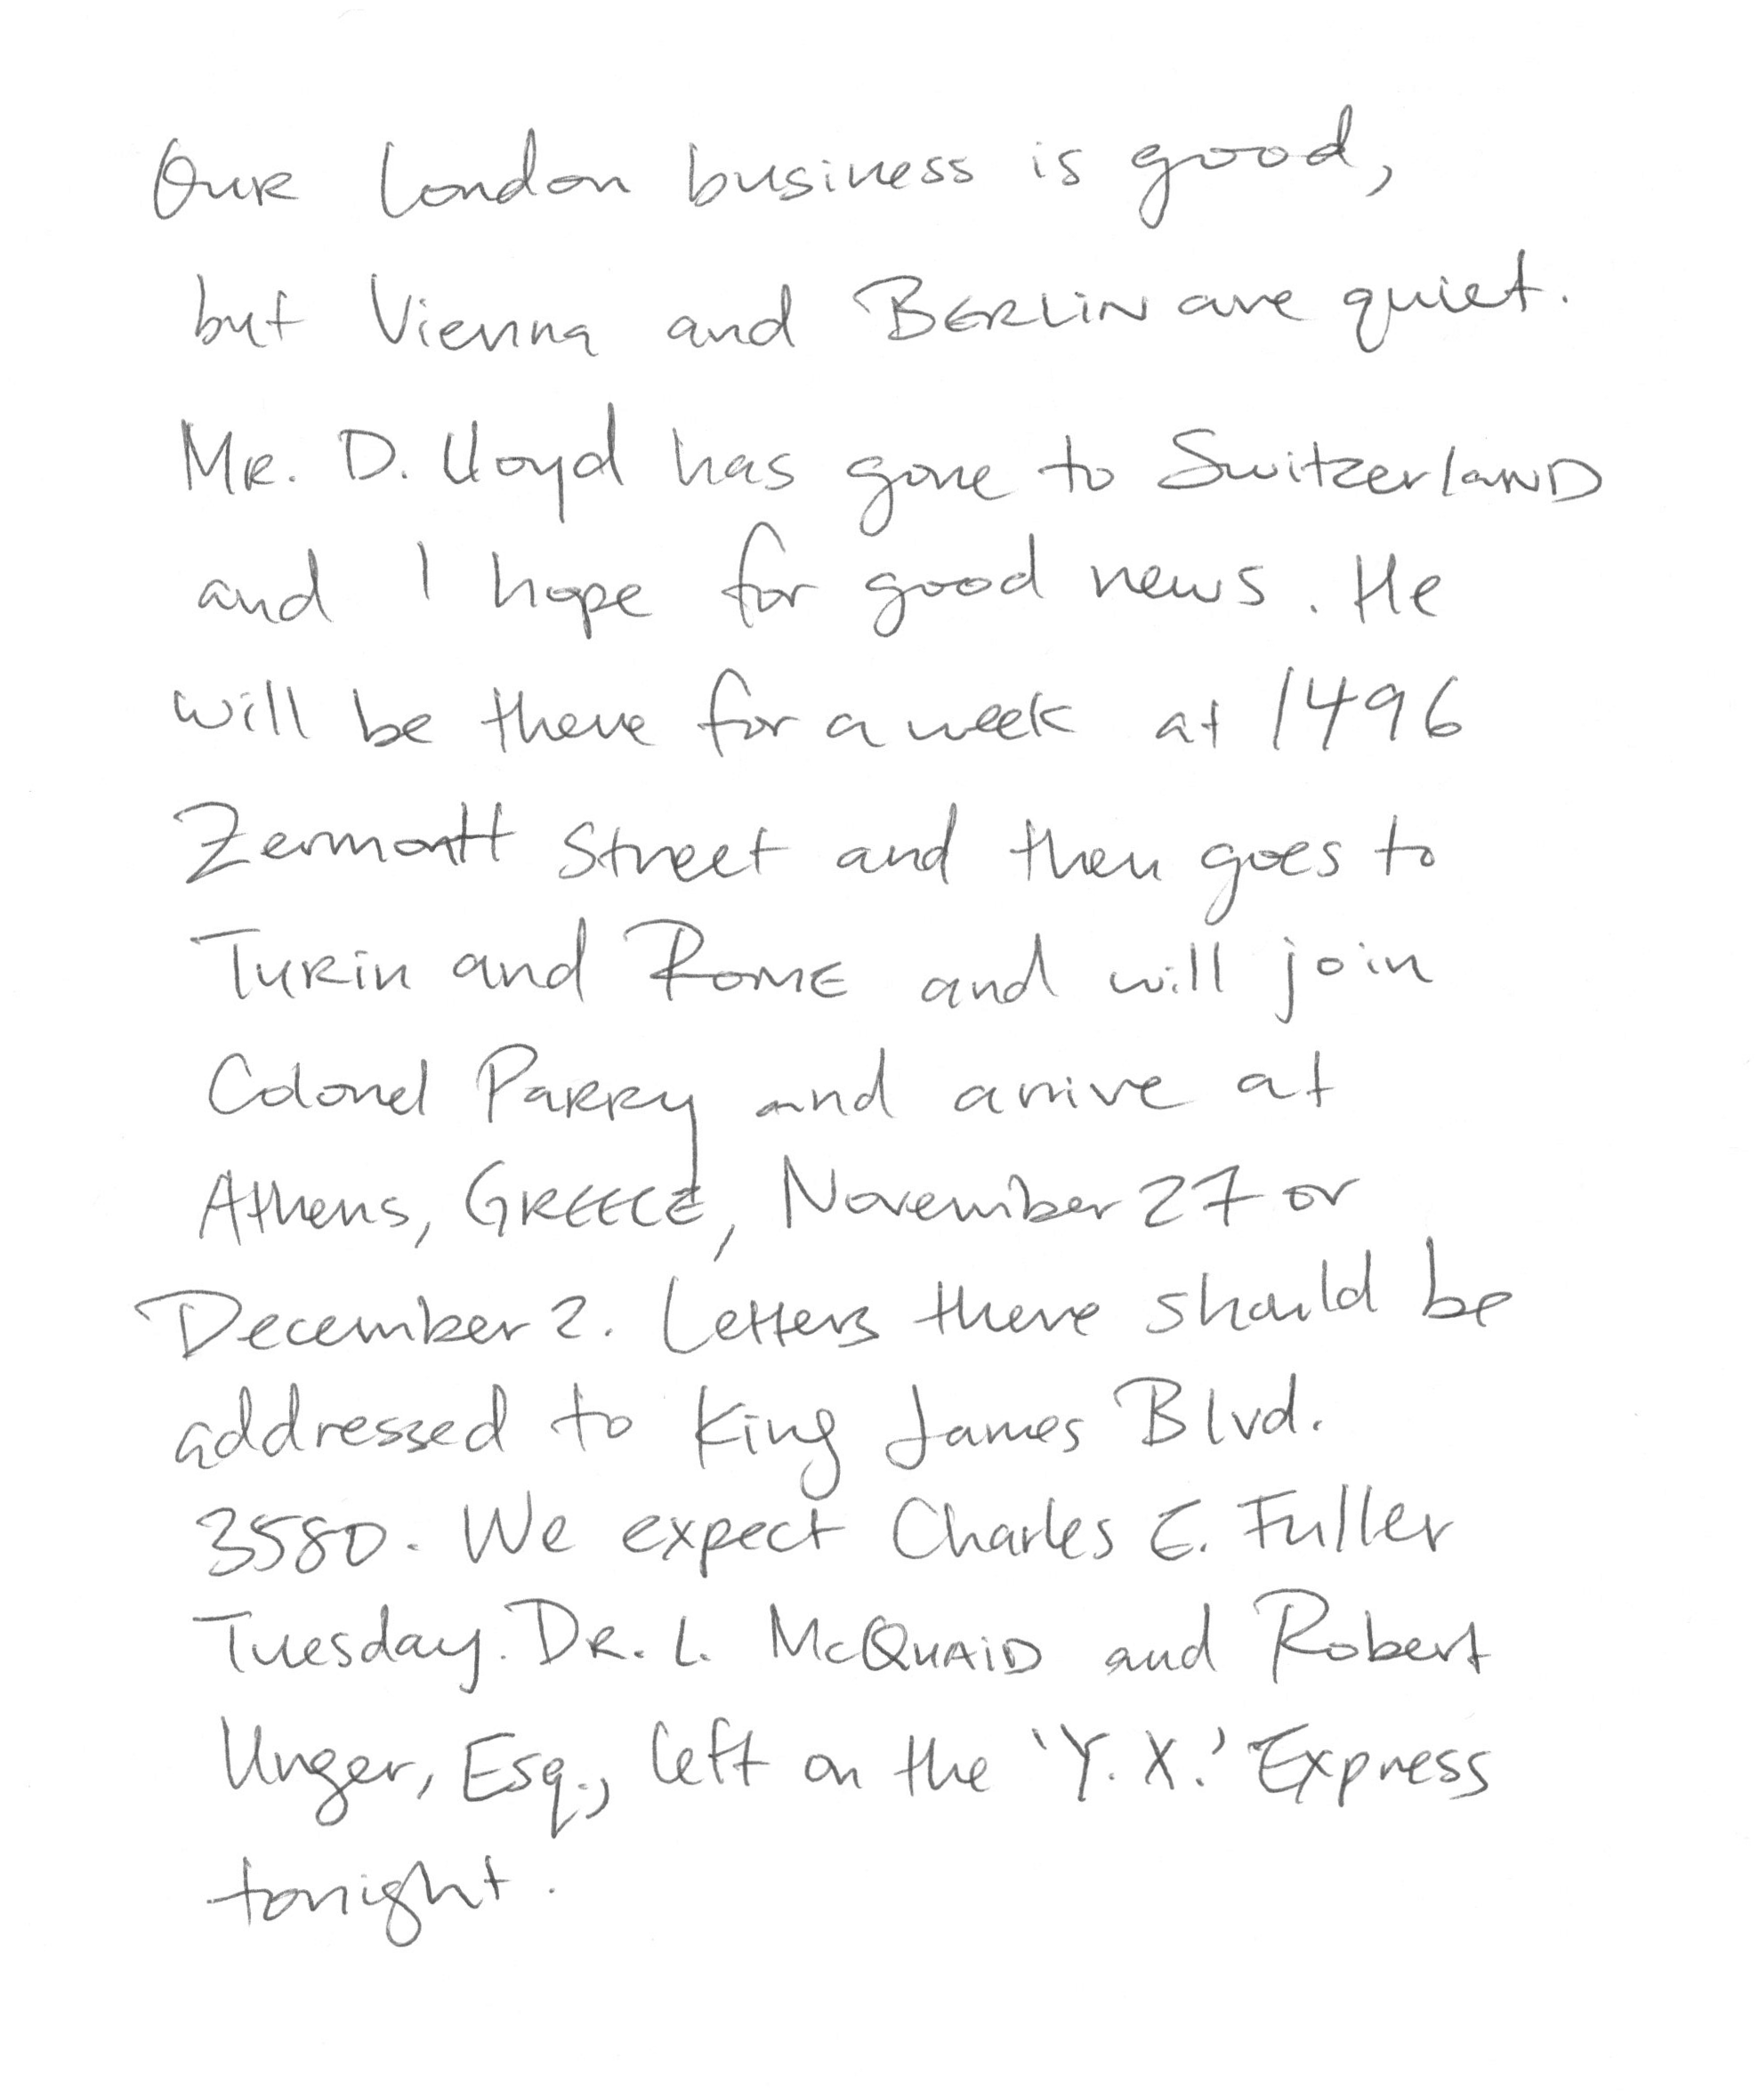 Our London business is good,
but Vienna and BERLIN are quiet.
MR. D. Lloyd has gone to SwitzerlAND
and I hope for good news. He
will be there for a week at 1496
Zermott Street and then goes to
TuRin and ROME and will join
Colonel PARRy and arrive at
Athens, GREECE, November 27 or
December 2. Letters there should be
addressed to King James Blvd.
3580. We expect Charles E. Fuller
Tuesday. DR. L. McQUAiD and Robert
Unger, Esq., left on the 'Y. X.' Express
tonight.